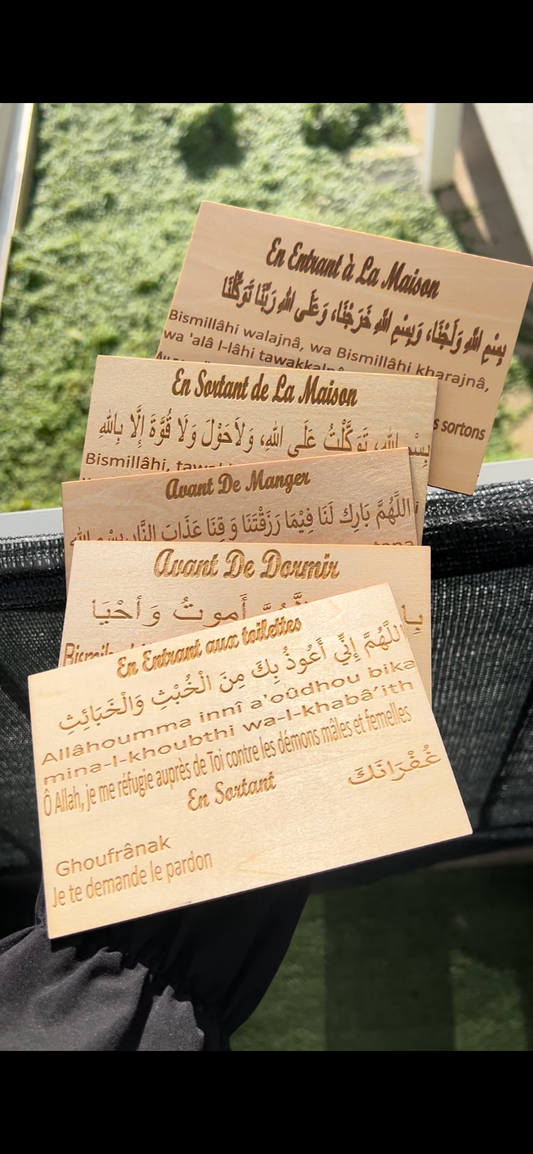 En Entrant à La Maison
بِسْمِ اللهِ وَلَجْنَا، وَبِسْمِ اللهِ خَرَجْنَا، وَعَلَى اللهِ رَبِّنَا تَوَكَّلْنَا
Bismillâhi walajnâ, wa Bismillâhi kharajnâ,
wa 'alâ l-lâhi tawakkalnâ
sortons
En Sortant de La Maison
بِسْمِ اللهِ، تَوَكَّلْتُ عَلَى اللهِ، وَلاَحَوْلَ وَلَا قُوَّةَ إِلَّا بِاللهِ
Bismillâhi,
Avant De Manger
اللَّهُمَّ بَارِك لَنَا فِيْمَا رَزَقْتَنَا وَقِنَا عَذَابَ النَّار بِسْمِ الله
Avant De Dormir
أَموتُ وَأَحْيَا
En Entrant aux toilettes
اللَّهُمَّ إِنِّي أَعُوذُ بِكَ مِنَ الْخُبْثِ وَالْخَبَائِثِ
Allâhoumma innî a'oûdhou bika
mina-l-khoubthi wa-l-khabâ'ith
Ô Allah, je me réfugie auprès de Toi contre les démons mâles et femelles
En Sortant
غُفْرَانَكَ
Ghoufrânak
Je te demande le pardon